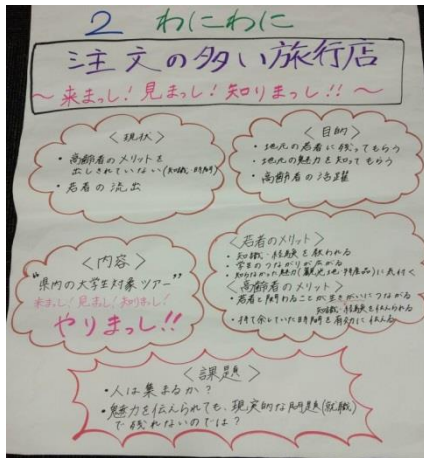 2 わにわに
注文の多い旅行店
～来まっし!見まっし!知りまっし!!～
＜現状＞
・高齢者のメリットを
出しきれていない(知識・時間)
・若者の流出
＜目的＞
・地元の若者に残ってもらう
・地元の魅力を知ってもらう
・高齢者の活躍
＜内容＞
"県内の大学生対象ツアー"
来まっし!見まっし!知りまっし!
やりまっし!!
＜若者のメリット＞
・知識・経験を教われる
・学生のつながりが広がる
・知らなかった魅力(観光地・特産品)に気付く
＜高齢者のメリット＞
・若者と関わることが生きがいにつながる
知識・経験を伝えられる
・持て余していた時間を有効に使える
＜課題＞
・人は集まるか?
・魅力を伝えられても、現実的な問題(就職)
で残れないのでは?